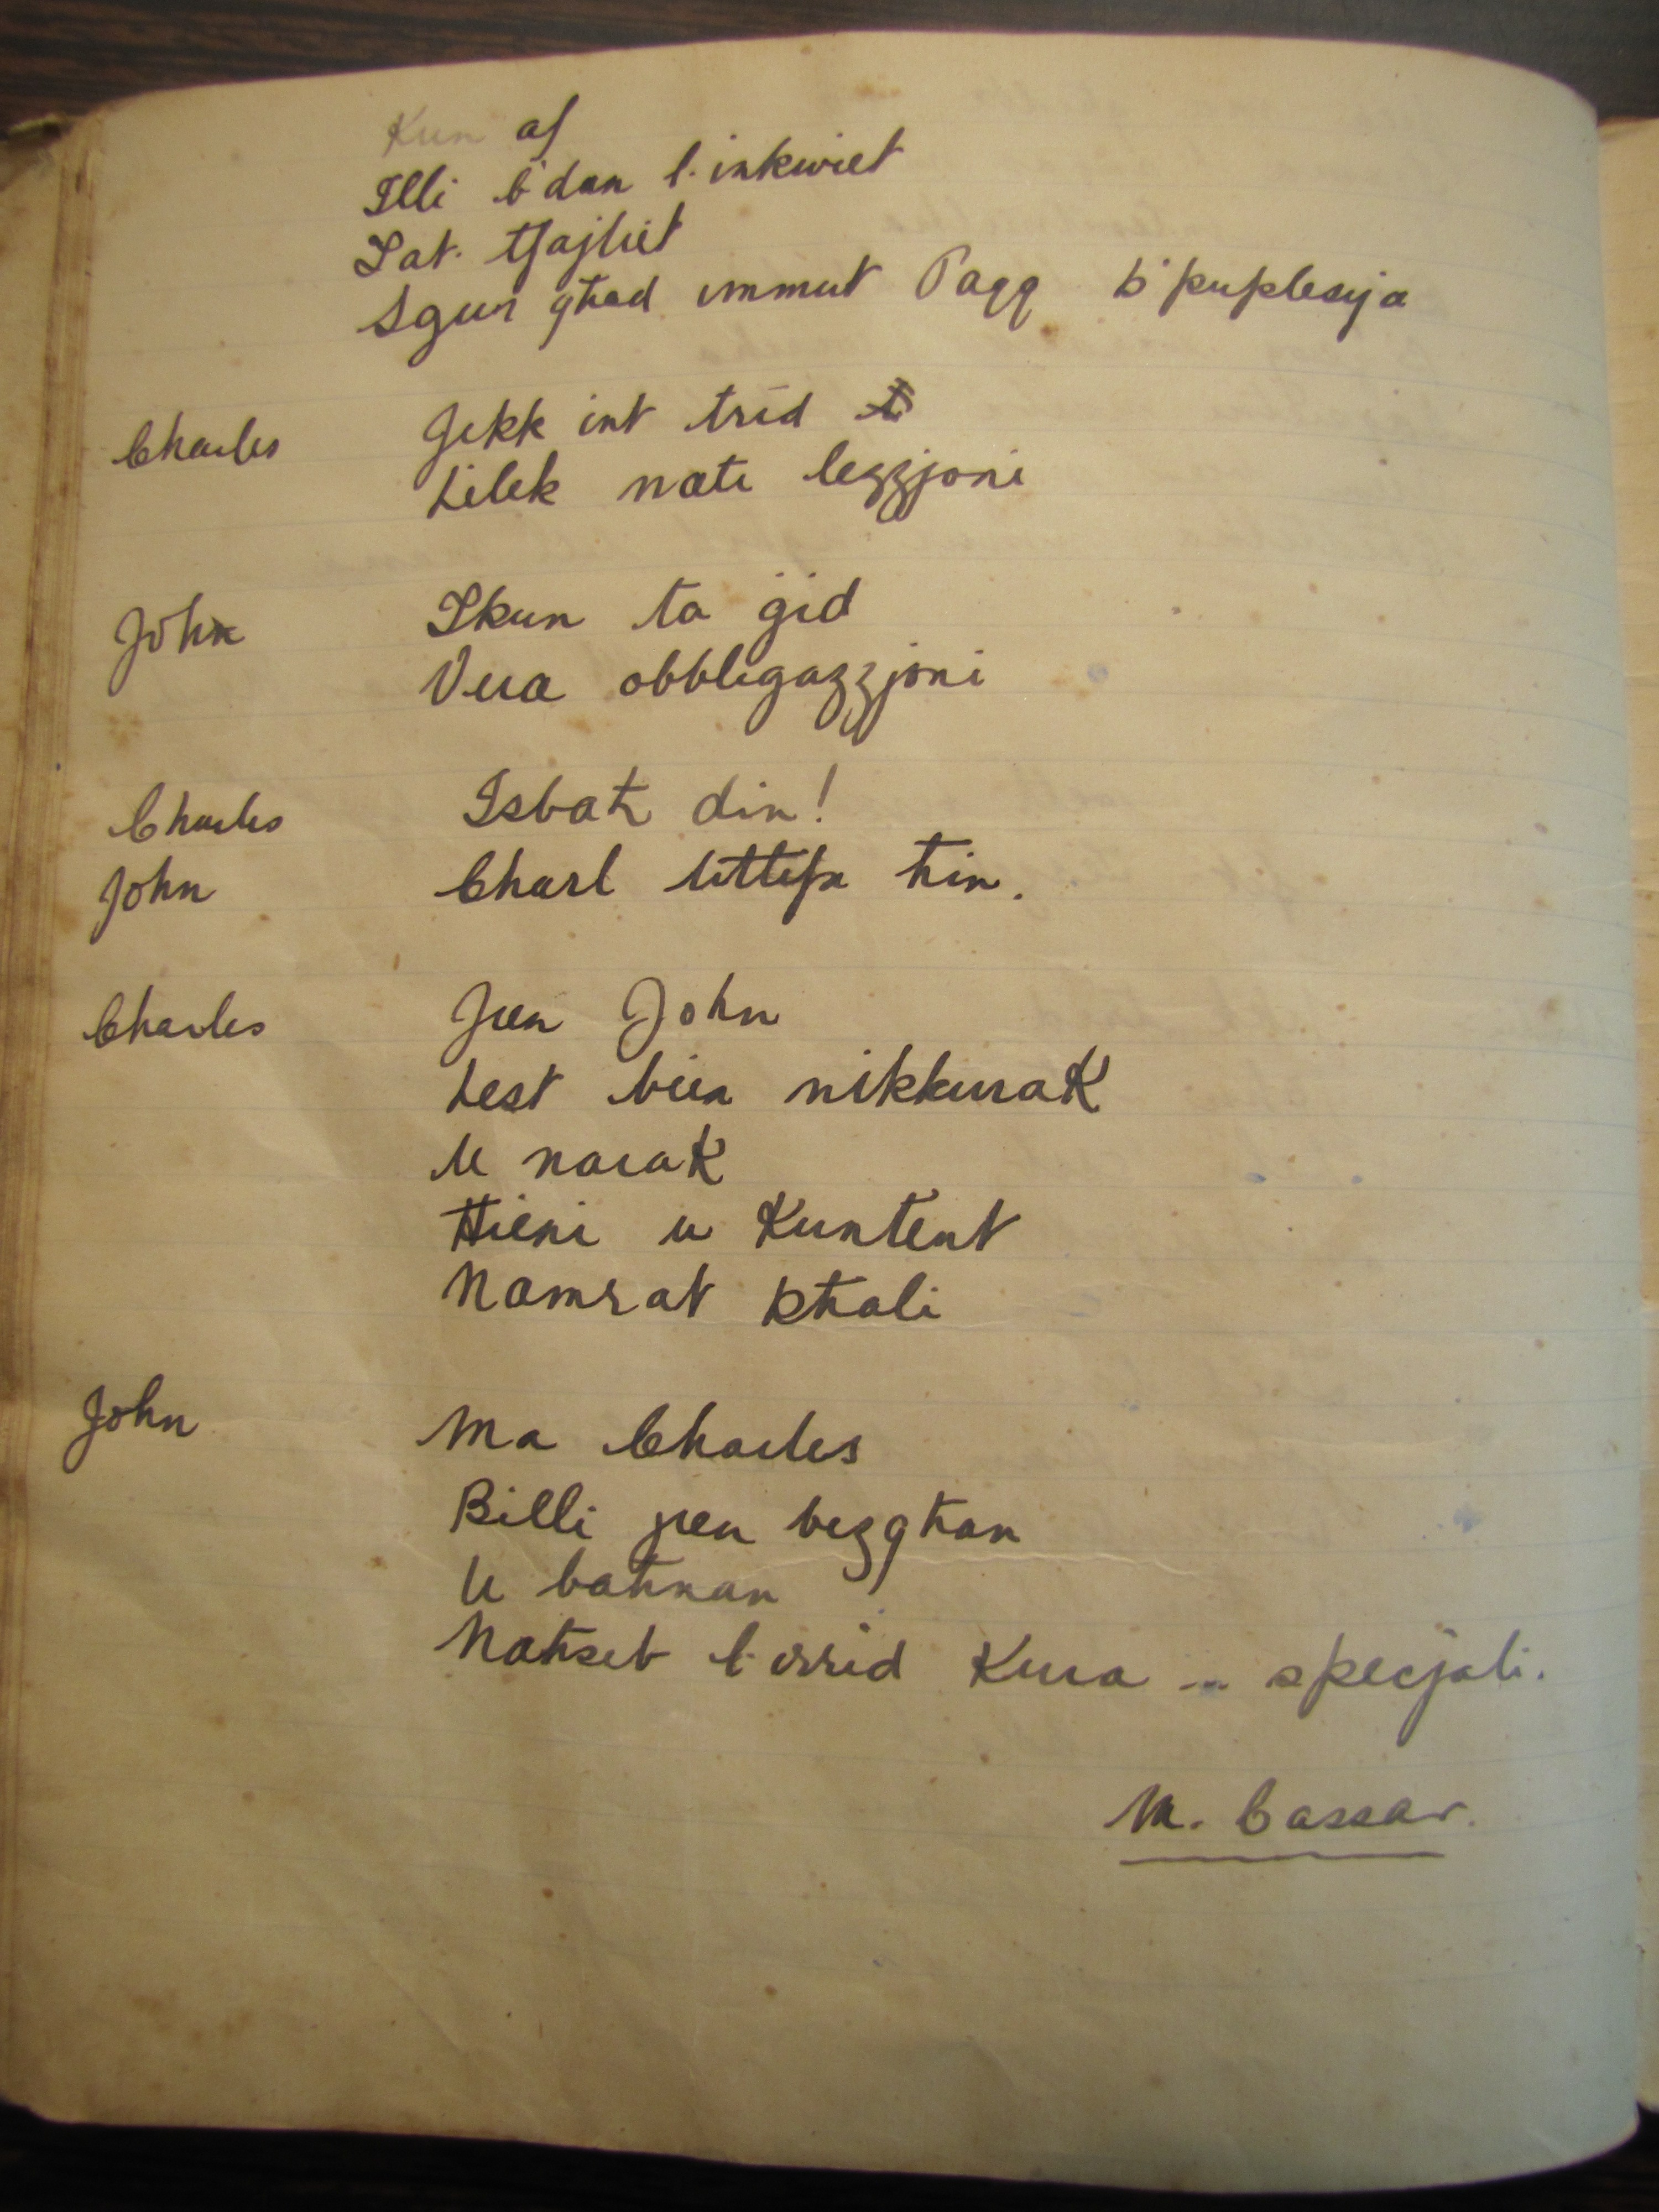 Kun af
Illi b'dan l-inkwiet
Sat-tfajliet
Sgur għad immut Paqq b'puplesija
Charles Jekk int trid
Lilek nati lezzjoni
John Ikun ta ġid
Vera obbligazzjoni
Charles Isbaħ din!
John Charl littifa ħin.
Charles Jien John
Lest biex nikkurak
U narak
Ħieni u Kuntent
Namrat Kħali
John Ma Charles
Billi jien bezgħan
U baħnan
Naħseb l-irrid Kura ... specjali.
M. Cassar.